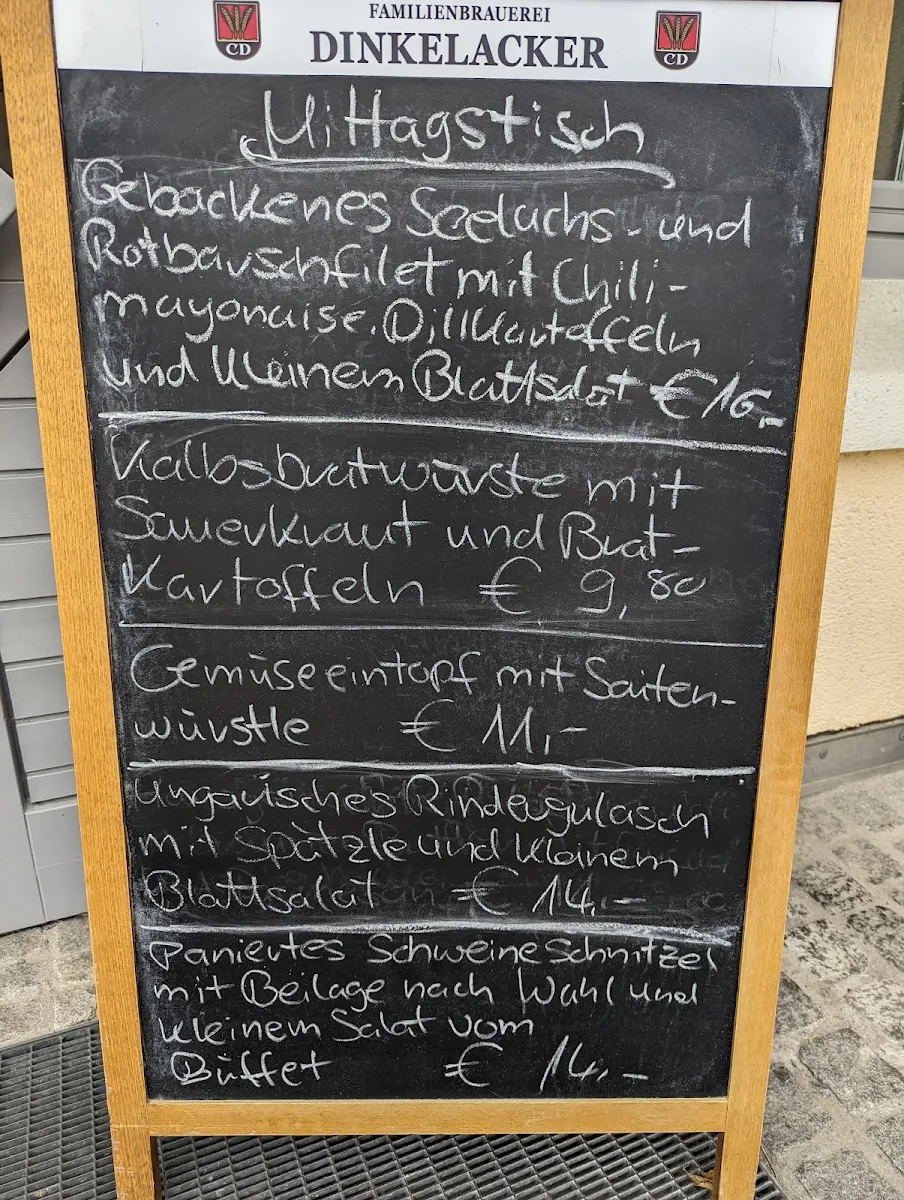 FAMILIENBRAUEREI
CD DINKELACKER CD
Mittagstisch
Gebackenes Seelachs- und
Rotbarschfilet mit Chili-
mayonaise. Dillkartoffeln
und kleinem Blattsalat € 16,-
Kalbsbratwürste mit
Sauerkraut und Brat-
kartoffeln € 9,80
Gemüseeintopf mit Saiten-
würstle € 11,-
Ungarisches Rindergulasch
mit Spätzle und kleinem
Blattsalat € 14,-
Paniertes Schweineschnitzel
mit Beilage nach Wahl und
kleinem Salat vom
Büffet € 14,-